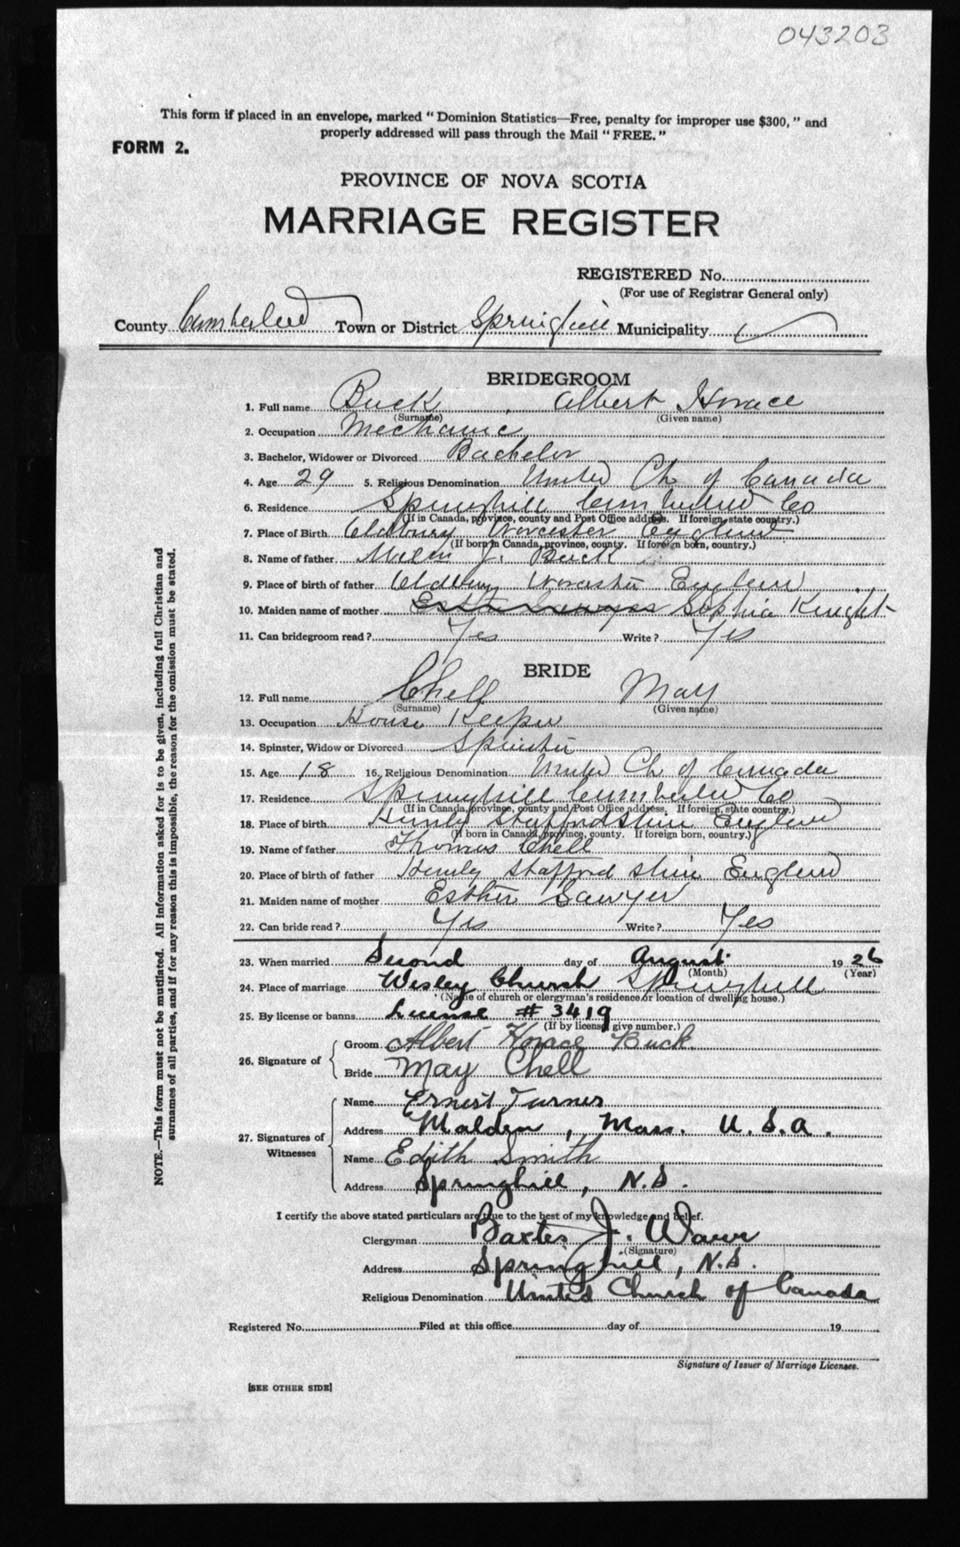 043203
This form if placed in an envelope, marked "Dominion Statistics—Free, penalty for improper use $300," and
properly addressed will pass through the Mail "FREE."
FORM 2.
PROVINCE OF NOVA SCOTIA
MARRIAGE REGISTER
REGISTERED No.
(For use of Registrar General only)
County Cumberland Town or District Springhill Municipality
BRIDEGROOM
1. Full name Buck, Albert Horace
(Surname) (Given name)
2. Occupation Mechanic
3. Bachelor, Widower or Divorced Bachelor
4. Age 29 5. Religious Denomination United Ch of Canada
6. Residence Springhill Cumberland Co
(If in Canada, province, county and Post Office address. If foreign, state country.)
7. Place of Birth Oldbury Worcester England
(If born in Canada, province, county. If foreign born, country.)
8. Name of father J. Buck
9. Place of birth of father Oldbury Worcester England
10. Maiden name of mother Sophia Knight
11. Can bridegroom read? Yes Write? Yes
BRIDE
12. Full name Chell May
(Surname) (Given name)
13. Occupation House Keeper
14. Spinster, Widow or Divorced Spinster
15. Age 18 16. Religious Denomination United Ch of Canada
17. Residence Springhill Cumberland Co
(If in Canada, province, county and Post Office address. If foreign, state country.)
18. Place of birth Staffordshire England
(If born in Canada, province, county. If foreign born, country.)
19. Name of father Thomas Chell
20. Place of birth of father Staffordshire England
21. Maiden name of mother Esther Sawyer
22. Can bride read? Yes Write? Yes
23. When married Second day of August 1926
(Month) (Year)
24. Place of marriage Wesley Church Springhill
(Name of church or clergyman's residence or location of dwelling house.)
25. By license or banns License # 3419
(If by license, give number.)
26. Signature of
Groom Albert Horace Buck
Bride May Chell
27. Signatures of Witnesses
Name Ernest Turner
Address Malden, Mass. U.S.A.
Name Edith Smith
Address Springhill, N.S.
I certify the above stated particulars are true to the best of my knowledge and belief.
Clergyman J.
(Signature)
Address Springhill, N.S.
Religious Denomination United Church of Canada
Registered No. Filed at this office day of 19
Signature of Issuer of Marriage Licenses.
[SEE OTHER SIDE]
NOTE.—This form must not be mutilated. All information asked for is to be given, including full Christian and
surnames of all parties, and if for any reason this is impossible, the reason for the omission must be stated.